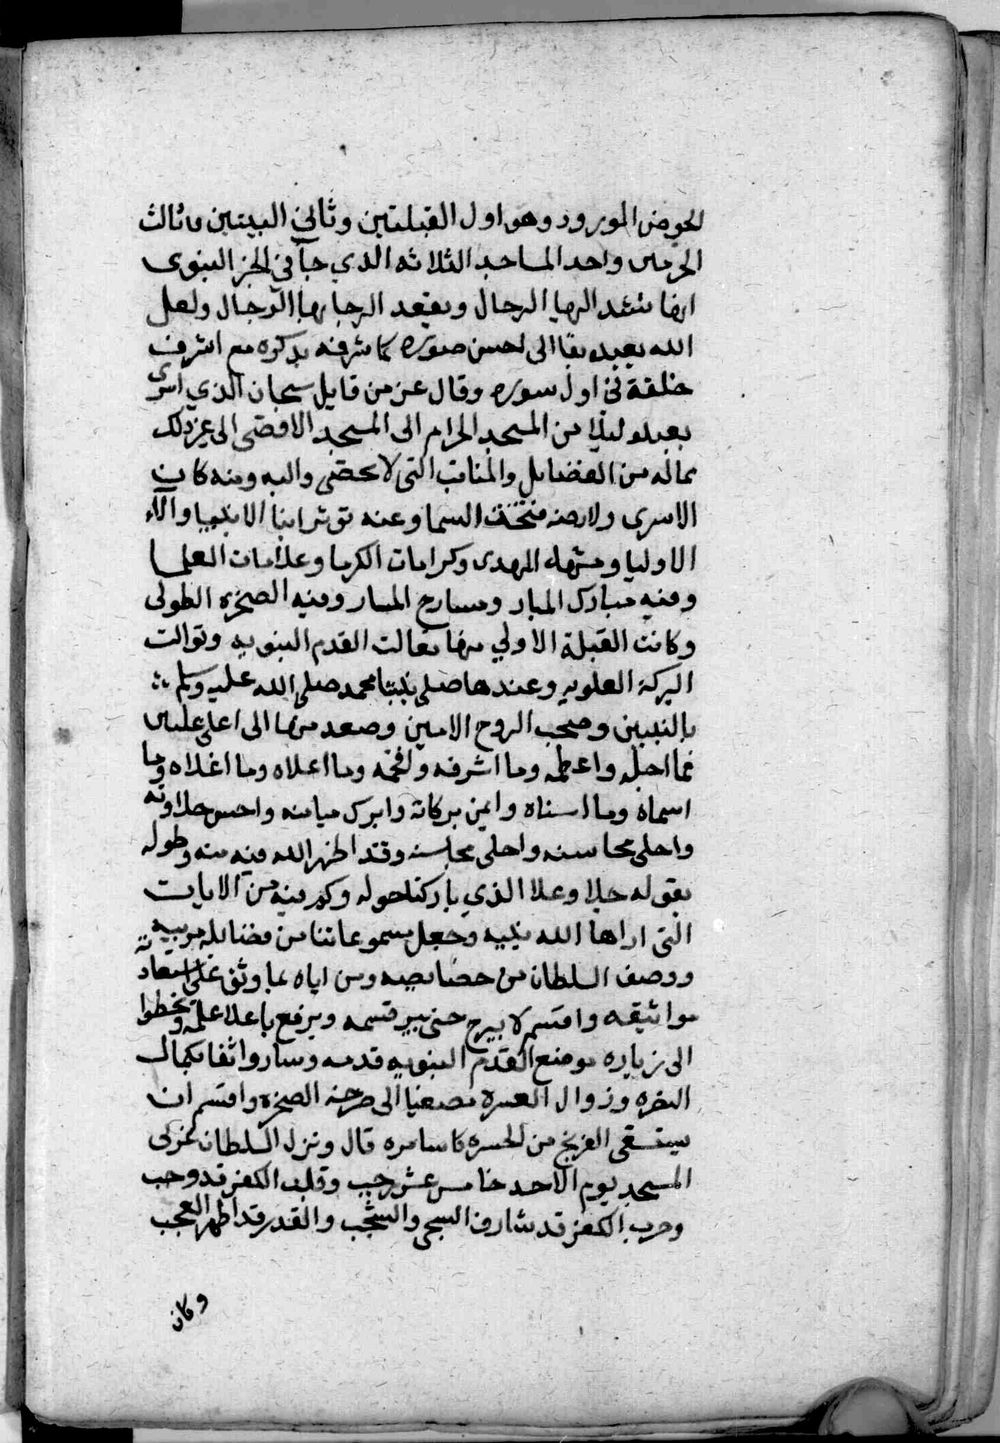 الحوض المورود وهو اول القبلتين وثاني البيتين وثالث
الحرمين واحد المساجد الثلاثه الذي جآ في الخبر النبوى
انها تشد اليها الرحال ويعقد الرجا بها الرجال ولعل
الله يعيده بنا الى احسن صوره كما شرفه بذكره مع اشرف
خلقه في اول سوره وقال عز من قايل سبحان الذي اسرى
بعبده ليلا من المسجد الحرام الى المسجد الاقصى الى غير ذلك
مماله من الفضايل والمناقب التى لا تحصى واليه ومنه كان
الاسرى ولارضه فتحت السما وعنه توثر انبا الانبيا والآء
الاوليا ومشهد الشهدى وكرامات الكرما وعلامات العلما
وفيه مبارك المبار ومسارح المسار وفيه الصخرة الطولى
وكانت القبلة الاولي منها تعالت القدم النبويه وتوالت
البركة العلويه وعندها صلى نبينا محمد صلى الله عليه وسلم
بالنبيين وصحب الروح الامين وصعد منها الى اعلى عليين
فما اجله واعظمه وما اشرفه وافخمه وما اعلاه وما اغلاه وما
اسماه وما اسناه وايمن بركاته وابرك ميامنه واحسن حلاوته
واحلى محاسنه واحلى مجلسه وقد اظهر الله فيه منه وطوله
بقوله جلا وعلا الذي باركنا حوله وكم فيه من الايات
التى اراها الله نبيه وجعل مسموعاتنا من فضايله مرييه
ووصف السلطان من خصايصه ومن اياه بما وثق على استعادته
مواثيقه واقسم لا يبرح حتى يبر قسمه ويرفع باعلا علمه وتخطوا
الى زياره موضع القدم النبويه قدمه وسار واثقا بكمال
النصره وزوال العسره مصغيا الى صرخة الصخره واقسم ان
سيسقى الفرنج من الحسره كاسا مره قال ونزل السلطان غربى
المسجد يوم الاحد خامس عشر رجب وقلب الكفر قد وجب
وحرب الكفر قد شارف الشجى والشجب والقدر قد اظهر العجب
وكان